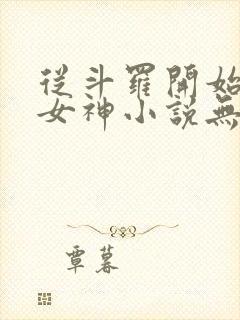 從斗羅開始
女神小說無
覃暮